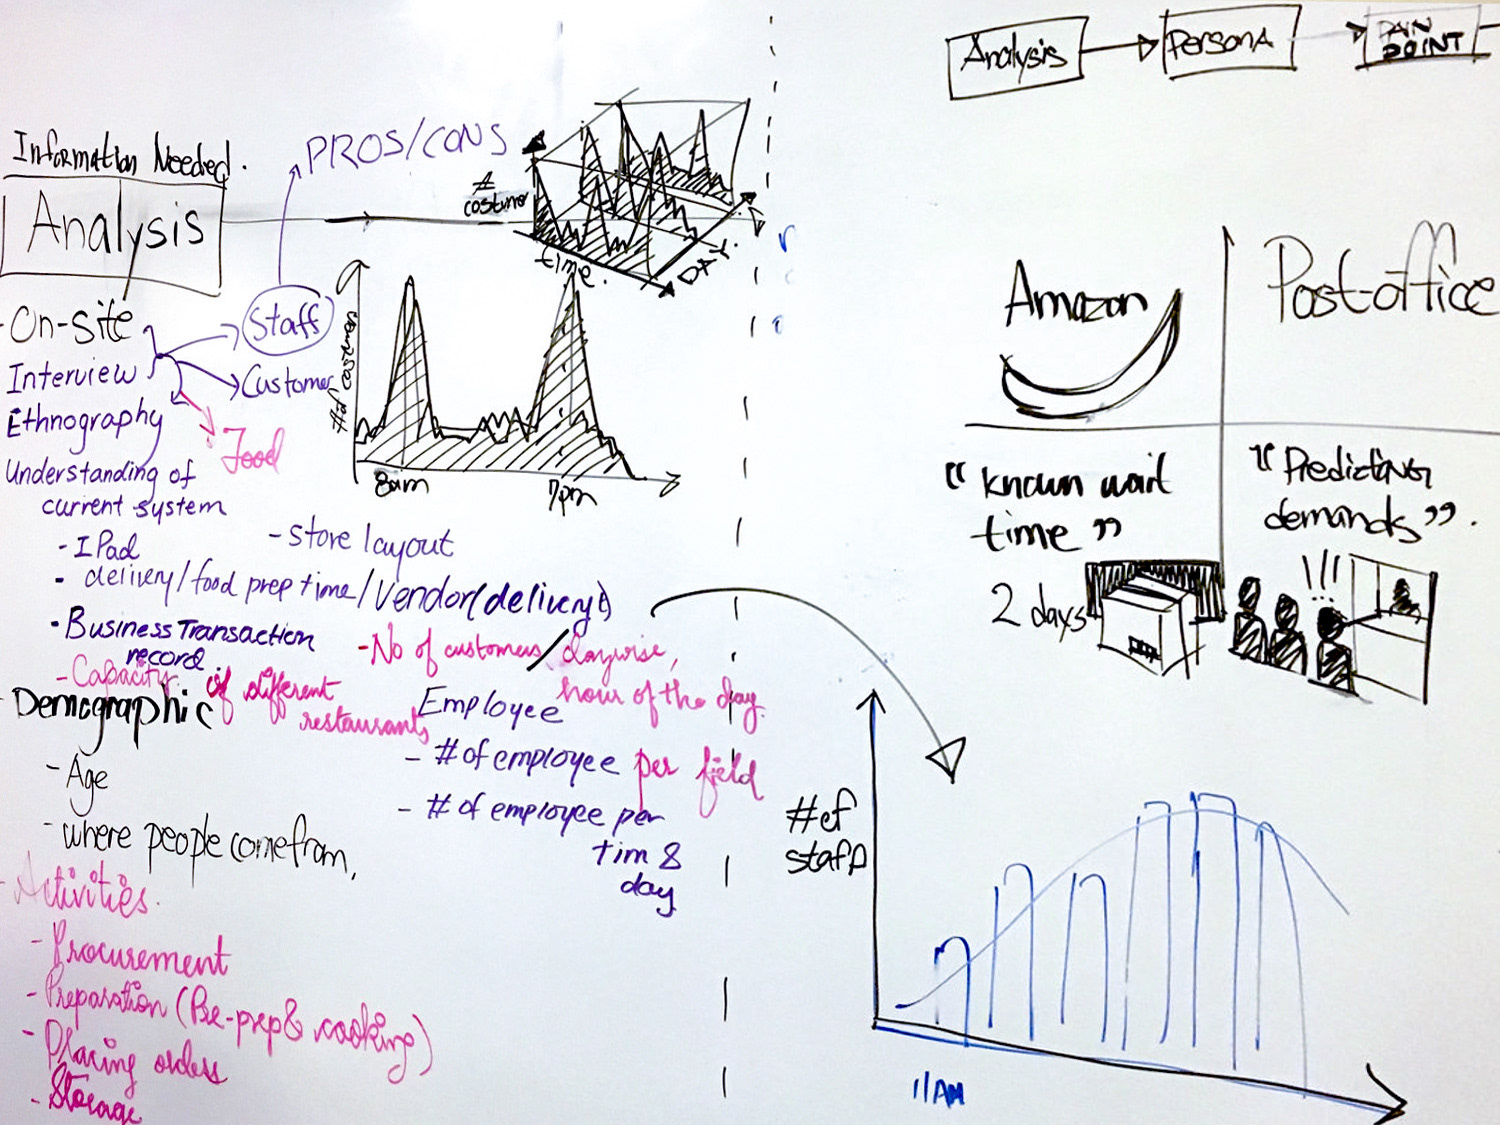 Information Needed.
Analysis
PROS/CONS
# costumer
time.
DAY.
On-site
Interview
Ethnography
Staff
Customer
Food
# of costumers
8am
7pm
Understanding of
current system
- IPad
- delivery/food prep time/Vendor(delivery)
- store layout
- Business Transaction
record.
- Capacity of different
restaurants
- No of customers/daywise,
hour of the day.
Demographic
- Age
- where people come from,
Employee
- # of employee per field
- # of employee per
tim &
day
Activities.
- Procurement
- Preparation (Pre-prep & cooking)
- Placing orders
- Storage
Analysis
PersonA
PAIN
POINT
Amazon
Post-office
"known wait
time"
2 days
"Predicting
demands".
!!!
# of
staff
11AM